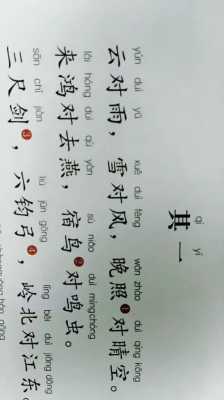 qí yī
其一
yún duì yǔ xuě duì fēng wǎn zhào duì qíng kōng
云对雨，雪对风，晚照❶对晴空。
lái hóng duì qù yàn sù niǎo duì míng chóng
来鸿对去燕，宿鸟❷对鸣虫。
sān chǐ jiàn liù jūn gōng lǐng běi duì jiāng dōng
三尺剑❸，六钧弓❹，岭北对江东。